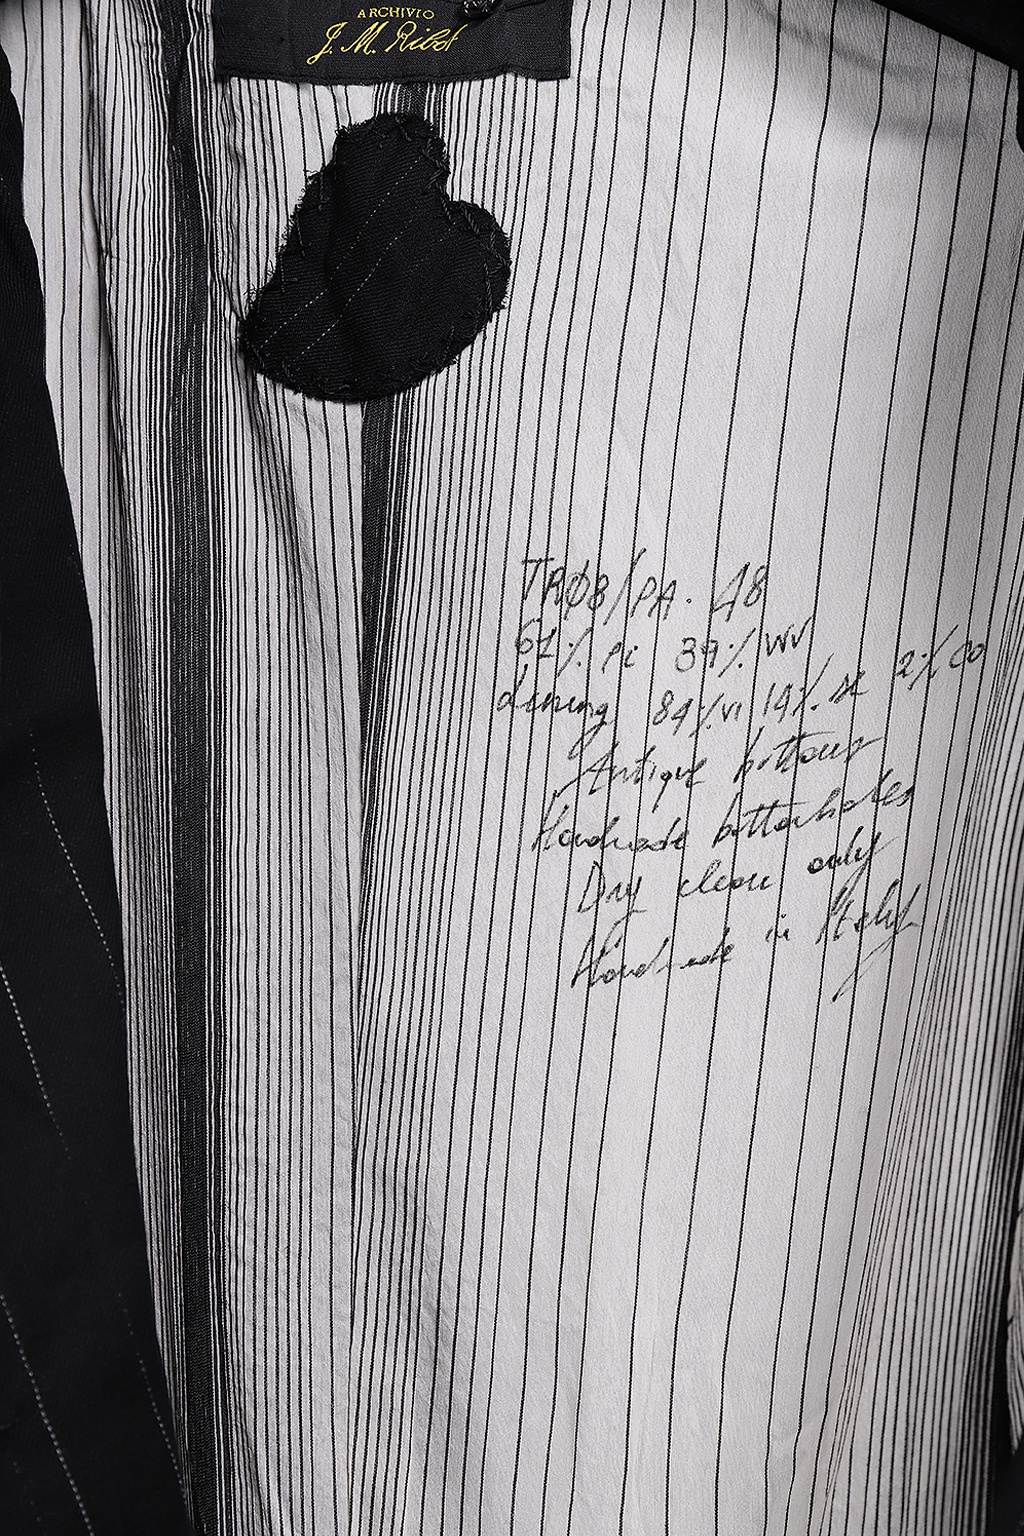 ARCHIVIO
J. M. Ribot
TRØ8/PA. 48
61% PC 39% WV
Lining 84% VI 14% SE 2% CO
Antique bottons
Handmade bottonholes
Dry clean only
Handmade in Italy